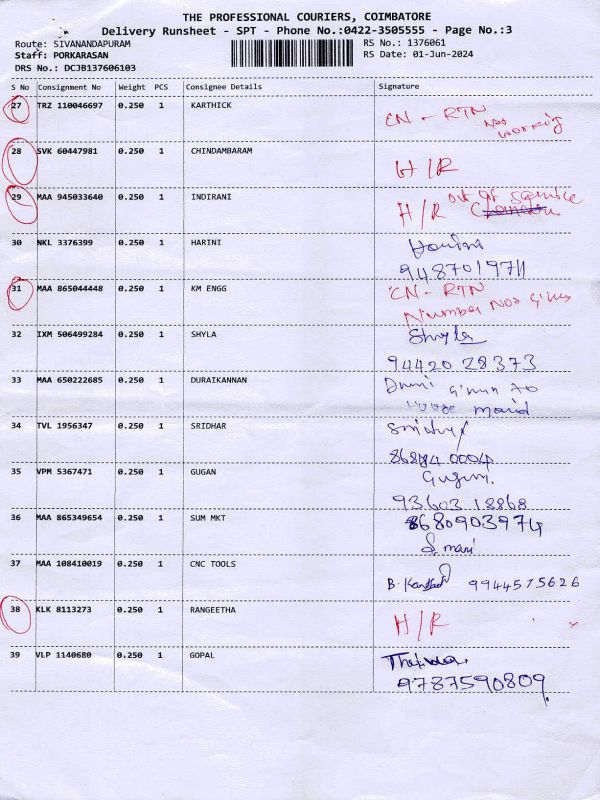 THE PROFESSIONAL COURIERS, COIMBATORE
Delivery Runsheet - SPT - Phone No.:0422-3505555 - Page No.:3
Route: SIVANANDAPURAM
Staff: PORKARASAN
DRS No.: DCJB137606103
RS No.: 1376061
RS Date: 01-Jun-2024
S No Consignment No Weight PCS Consignee Details Signature
27 TRZ 110046697 0.250 1 KARTHICK CN - RTN
Not working
28 SVK 60447981 0.250 1 CHINDAMBARAM H/R
29 MAA 945033640 0.250 1 INDIRANI H/R out of
30 NKL 3376399 0.250 1 HARINI Harini
9487019711
31 MAA 865044448 0.250 1 KM ENGG CN - RTN
Number Not Given
32 IXM 506499284 0.250 1 SHYLA Shyla
94420 28373
33 MAA 650222685 0.250 1 DURAIKANNAN
34 TVL 1956347 0.250 1 SRIDHAR
86844 0004
35 VPM 5367471 0.250 1 GUGAN Gugan
93603 18868
36 MAA 865349654 0.250 1 SUM MKT 8680903974
S. mani
37 MAA 108410019 0.250 1 CNC TOOLS B. 9944575626
38 KLK 8113273 0.250 1 RANGEETHA H/R
39 VLP 1140680 0.250 1 GOPAL
9787590809